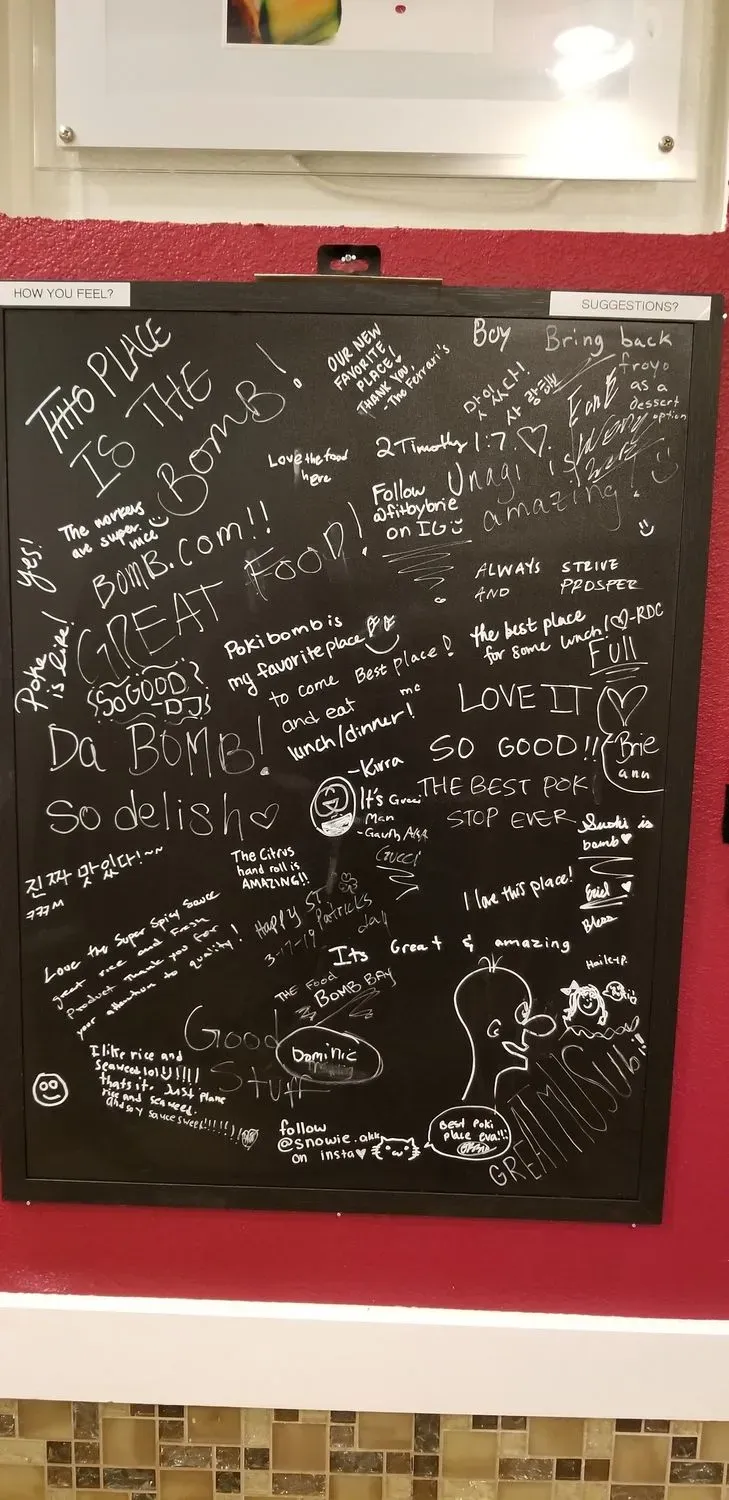 HOW YOU FEEL?
SUGGESTIONS?
THIS PLACE
IS THE
BOMB!
OUR NEW
FAVORITE
PLACE!
THANK YOU,
-The Ferrari's
Boy
Bring back
froyo
as a
dessert
option
맛있다!
사랑해
Love the food
here
2 Timothy 1:7 ♡
Unagi is
amazing!
Follow
@fitbybrie
on IG
The workers
are super
nice
Yes!
BOMB.com!!
GREAT FOOD!
Poke
is life!
{SO GOOD
-DJ}
ALWAYS STRIVE
AND PROSPER
Pokibomb is
my favorite place
to come
and eat
lunch/dinner!
-Kirra
Best place!
the best place
for some lunch! ♡-RDC
Full
Da BOMB!
LOVE IT
SO GOOD!!
Brie
ann
So delish♡
It's Gucci
Man
Gucci
THE BEST POKI
STOP EVER
Sushi is
bomb♥
진짜 맛있다!~~
ㅋㅋㅋM
The Citrus
hand roll is
AMAZING!!
I love this place!
Love the Super Spicy Sauce
great rice and Fresh
Product Thank you for
your attention to quality!
Happy ST
Patricks
day
3-17-19
Its Great & amazing
THE FOOD
BOMB BAY
Good
Stuff
Dominic
I like rice and
seaweed lol!!!!!
thats it. Just plane
rice and seaweed.
And soy sauce sweet!!!!!)
follow
@snowie.akk
on insta♥
Best Poki
place eva!!!
GREAT MOSUBI!!